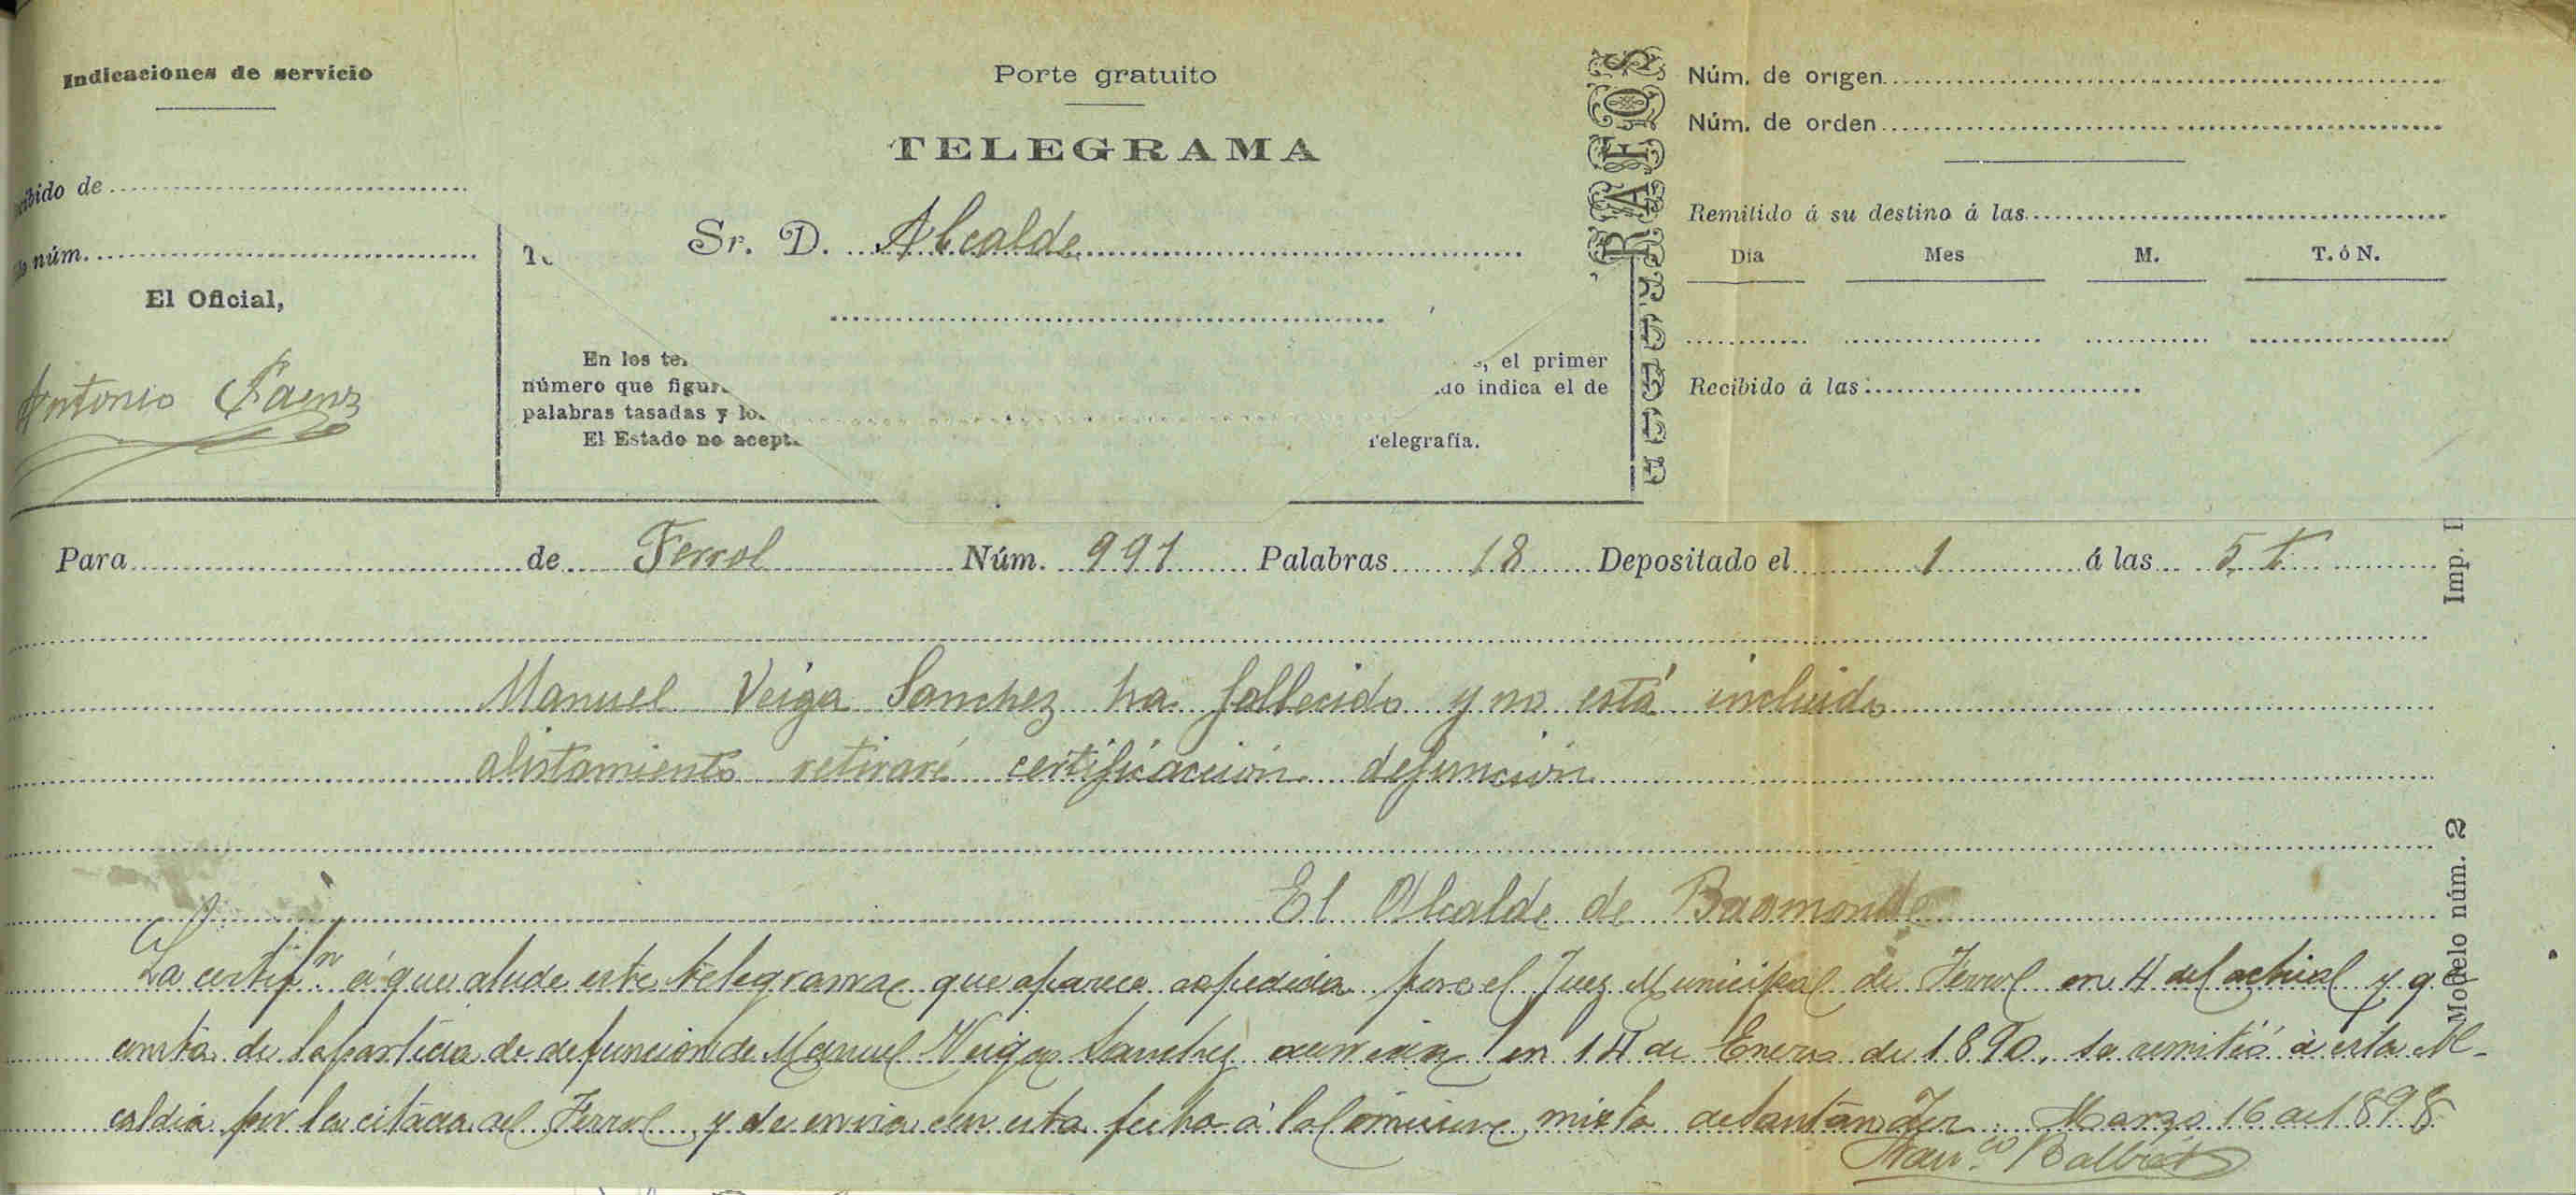 Indicaciones de servicio
cibido de
do núm.
El Oficial,
Antonio Saenz
Porte gratuito
TELEGRAMA
Sr. D. Alcalde
En los te
número que figur
palabras tasadas y lo
El Estado no acept
, el primer
do indica el de
Telegrafía.
TELÉGRAFOS
Núm. de origen
Núm. de orden
Remitido á su destino á las
Día Mes M. T. ó N.
Recibido á las
Para de Ferrol Núm. 991 Palabras 18 Depositado el 1 á las 5 t
Manuel Veiga Sanchez ha fallecido y no está incluido
alistamiento retiraré certificación defunción
El Alcalde de
La certifn. á que alude este telegrama que aparece expedida por el Juez Municipal de Ferrol en 4 del actual y q.
consta de la partida de defunción de Manuel Veiga Sanchez ocurrida en 14 de Enero de 1890, se remitió á esta Al-
caldia por la citada del Ferrol y se envia con esta fecha á la Comision mixta de Santander. Marzo 16 de 1898
Franco. Balbi
Imp. l
Modelo núm. 2